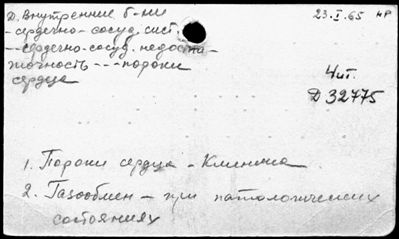 Д. Внутренние б-ни
23.I.65 НР
-сердечно-сосуд. сист.
--сердечно-сосуд. недоста-
точность---пороки
сердца
4ит.
Д 32775
1. Пороки сердца - Клиника
2. Газообмен - при патологических
состояниях